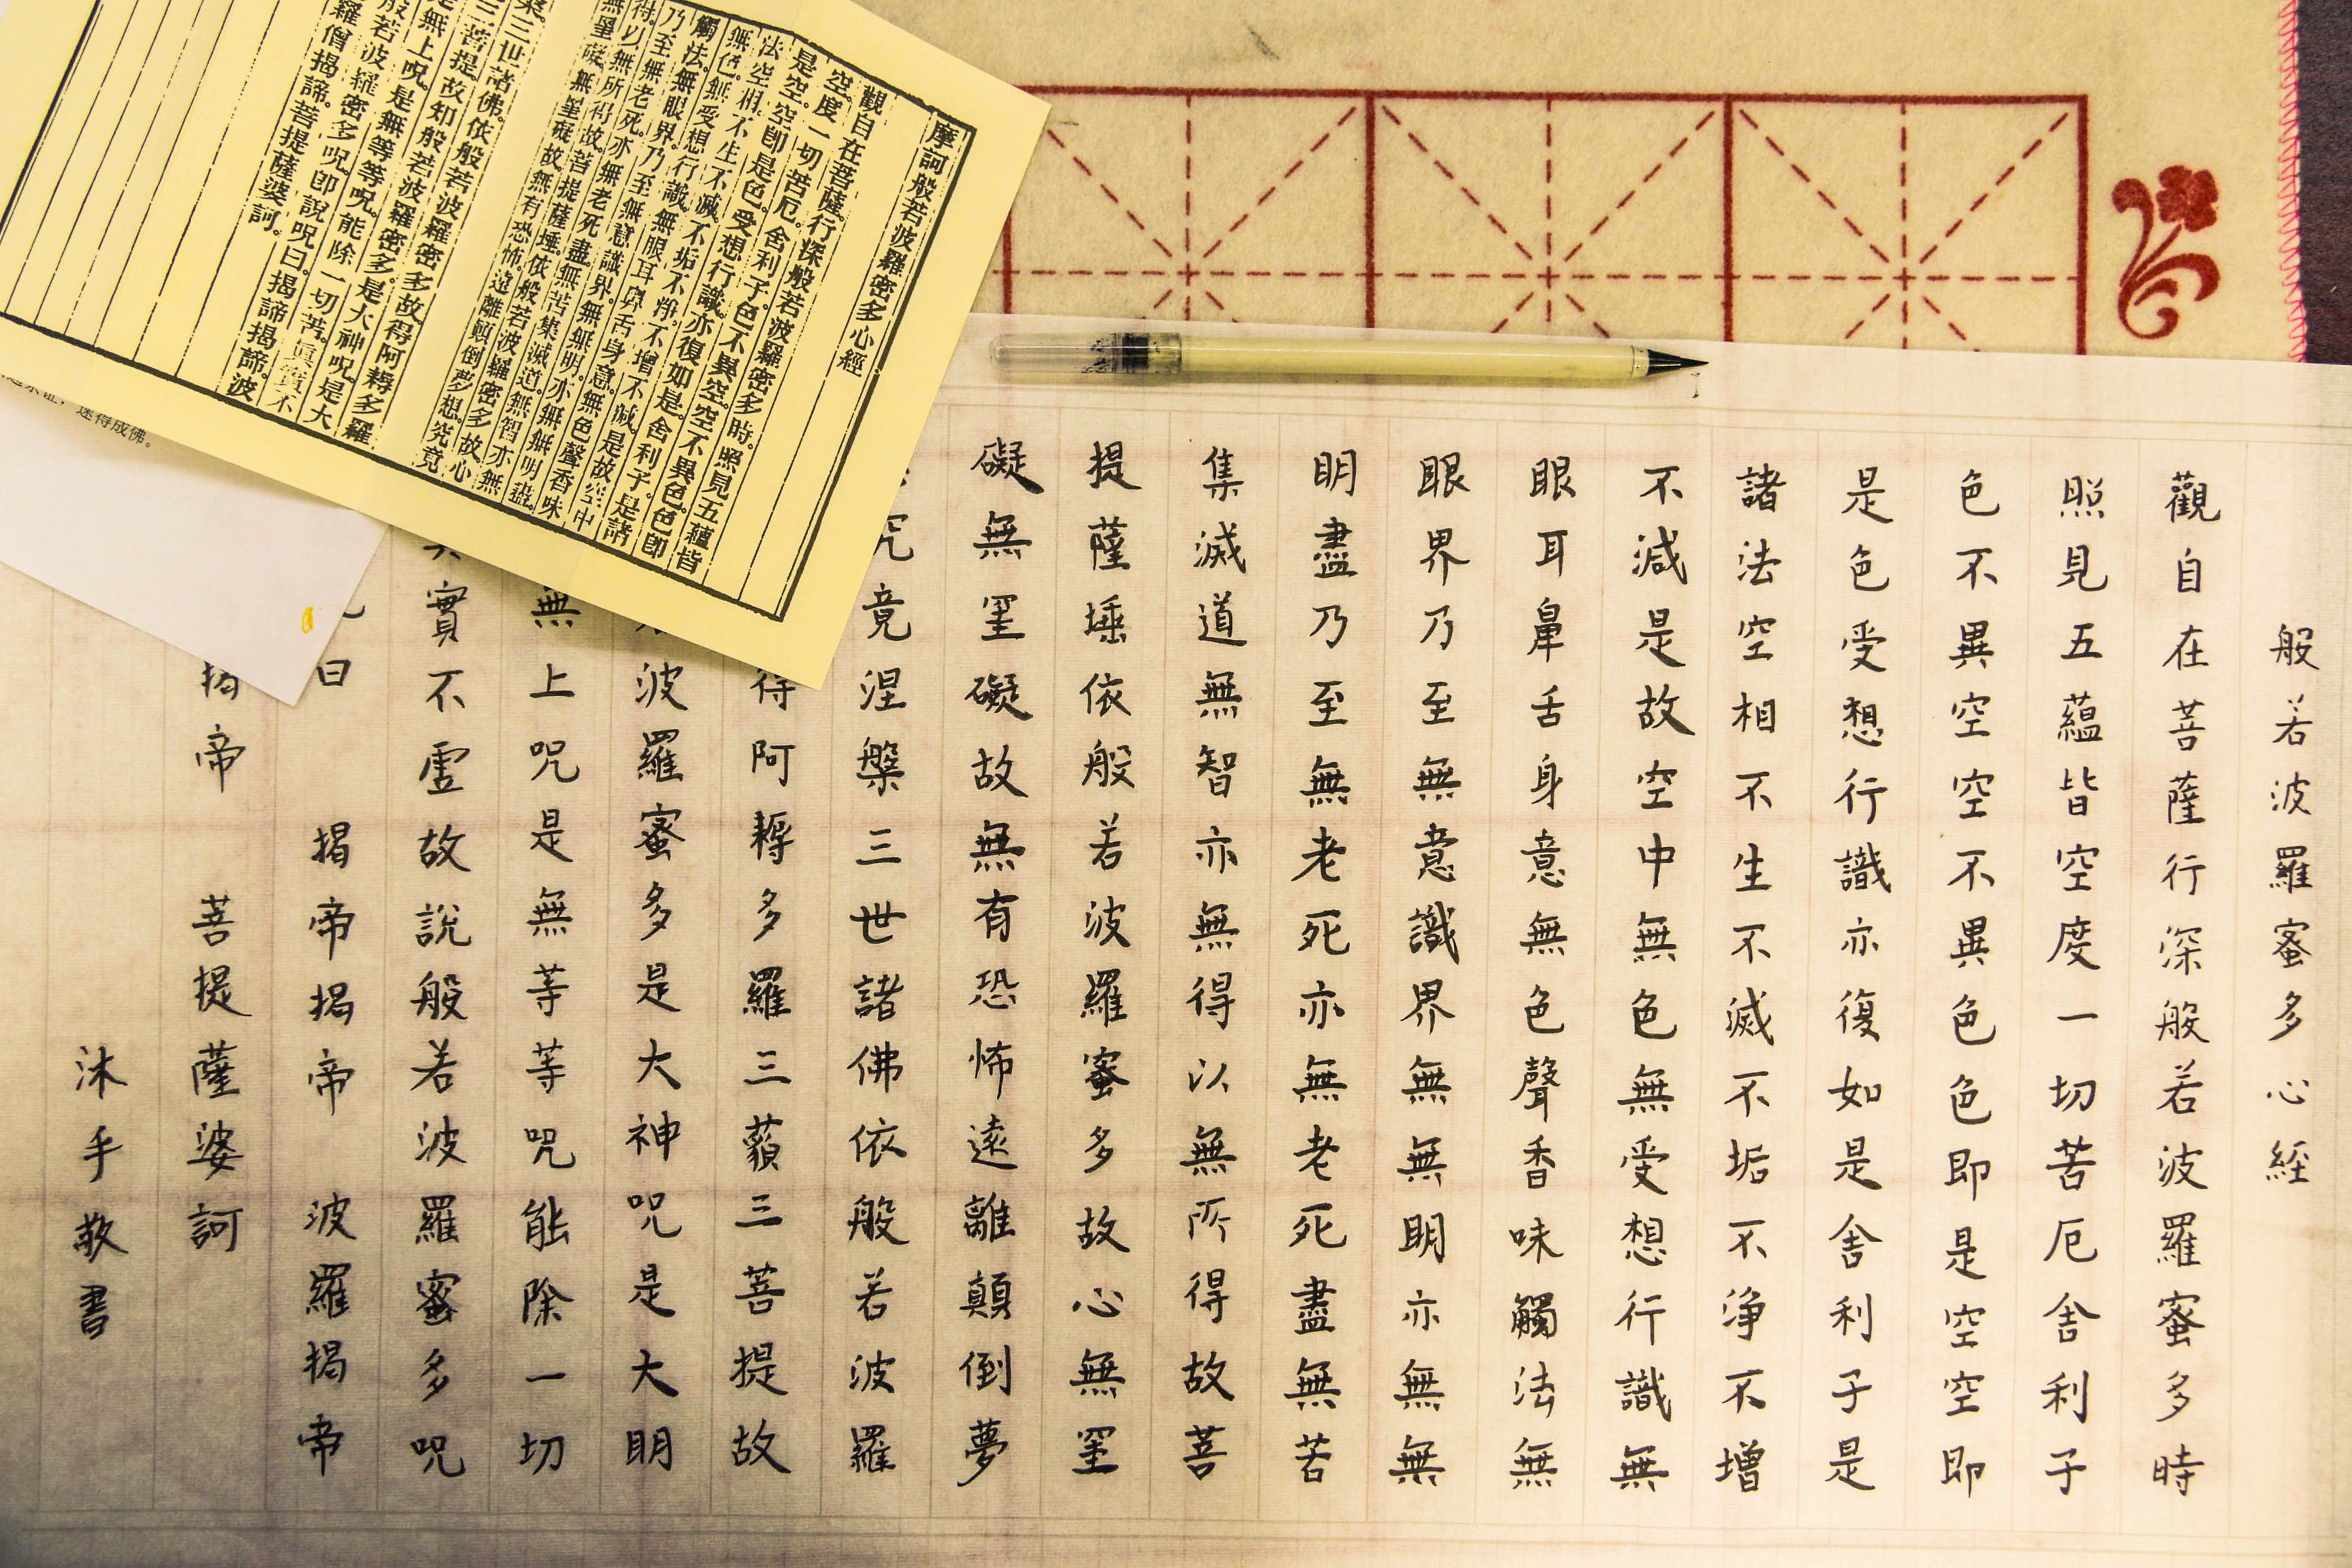 般若波羅蜜多心経
觀自在菩薩行深般若波羅蜜多時
照見五蘊皆空度一切苦厄舍利子
色不異空空不異色色即是空空即
是色受想行識亦復如是舍利子是
諸法空相不生不滅不垢不淨不增
不減是故空中無色無受想行識無
眼耳鼻舌身意無色聲香味觸法無
眼界乃至無意識界無無明亦無無
明盡乃至無老死亦無老死盡無苦
集滅道無智亦無得以無所得故菩
提薩埵依般若波羅蜜多故心無罣
礙無罣礙故無有恐怖遠離顛倒夢
究竟涅槃三世諸佛依般若波羅
得阿耨多羅三藐三菩提故
波羅蜜多是大神咒是大明
無上咒是無等等咒能除一切
實不虛故說般若波羅蜜多咒
曰 揭帝揭帝 波羅揭帝
揭帝 菩提薩婆訶
沐手敬書
摩訶般若波羅密多心經
觀自在菩薩。行深般若波羅密多時。照見五蘊皆
空。度一切苦厄。舍利子。色不異空。空不異色。色即
是空。空即是色。受想行識。亦復如是。舍利子。是諸
法空相。不生不滅。不垢不淨。不增不減。是故空中
無色。無受想行識。無眼耳鼻舌身意。無色聲香味
觸法。無眼界。乃至無意識界。無無明。亦無無明盡。
乃至無老死。亦無老死盡。無苦集滅道。無智亦無
得。以無所得故。菩提薩埵。依般若波羅密多故。心
無罣礙。無罣礙故。無有恐怖。遠離顛倒夢想。究竟
槃。三世諸佛。依般若波羅密多故。得阿耨多羅
三菩提。故知般若波羅密多。是大神咒。是大
是無上咒。是無等等咒。能除一切苦。真實不
般若波羅密多咒。即說咒曰。揭諦揭諦。波
羅僧揭諦。菩提薩婆訶。
速得成佛。